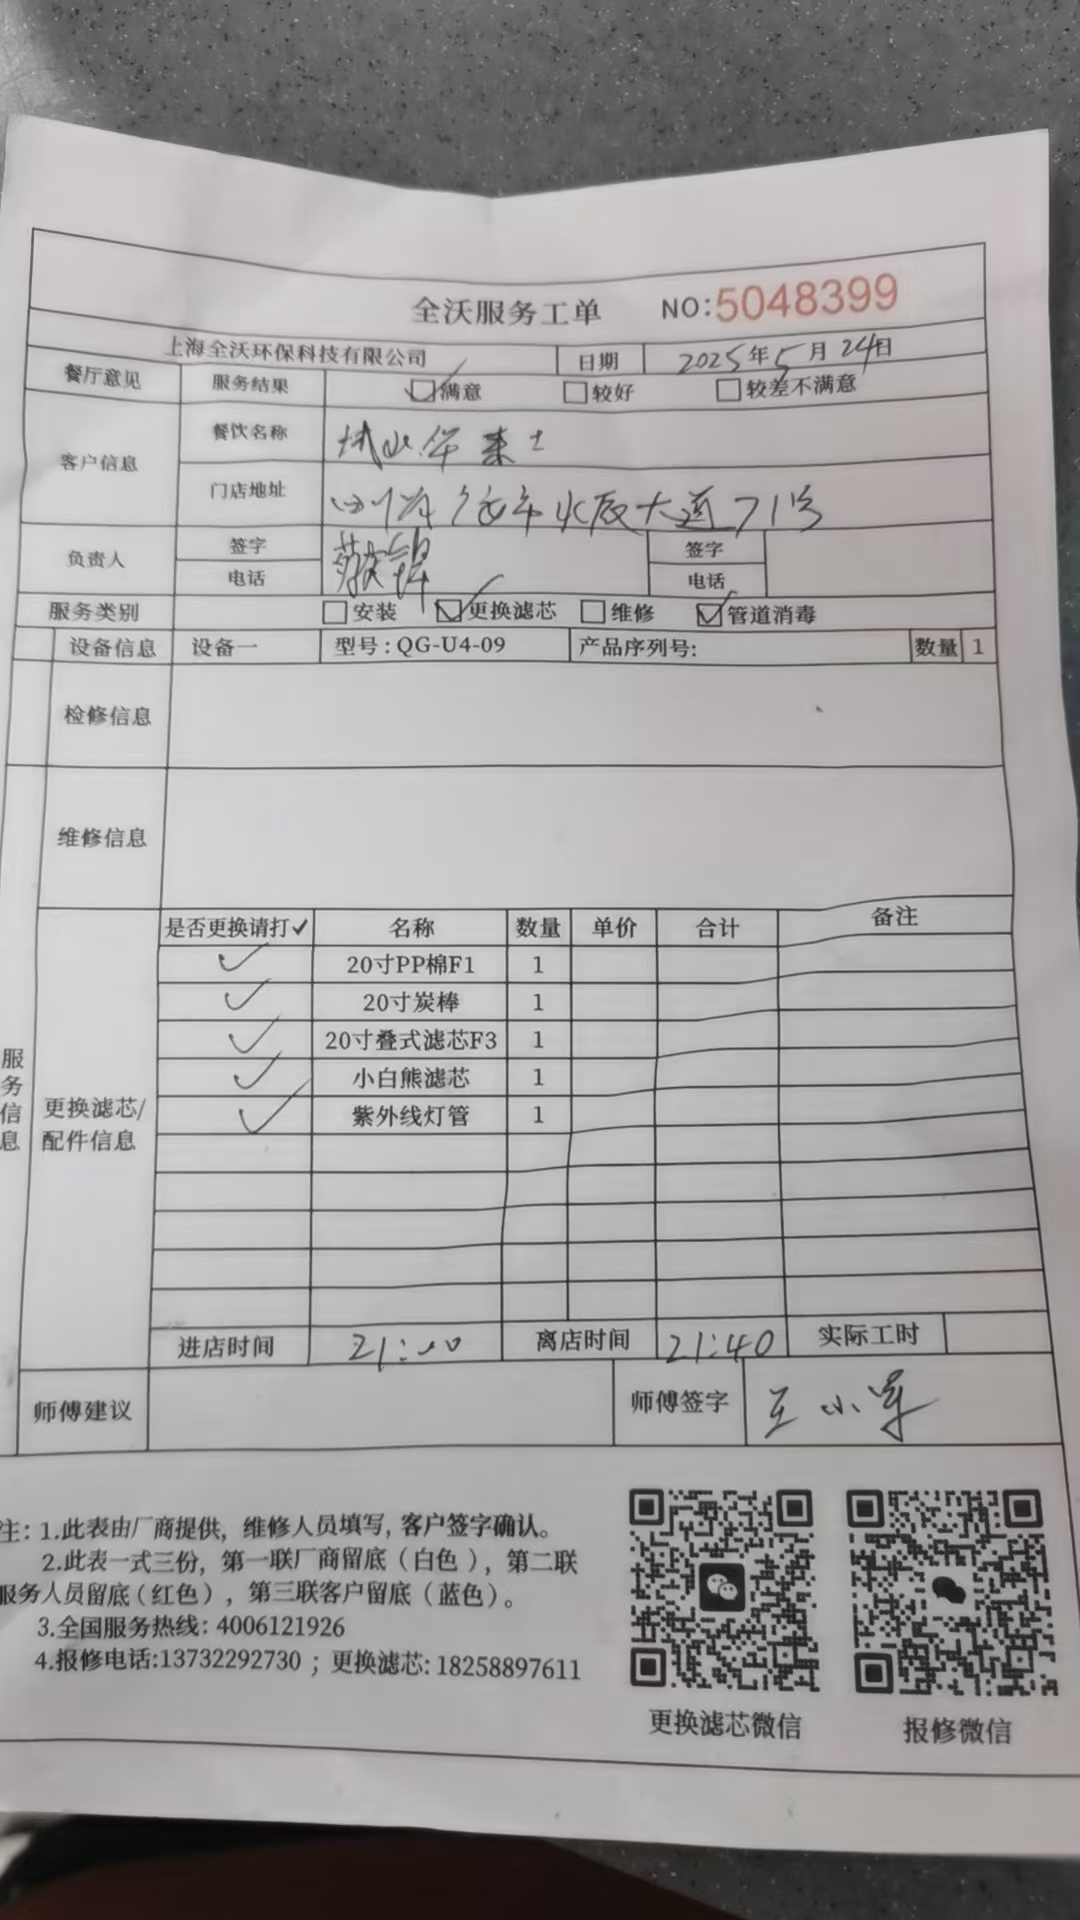 全沃服务工单 NO:5048399
上海全沃环保科技有限公司 日期 2025年5月24日
餐厅意见 服务结果 满意 较好 较差不满意
客户信息 餐饮名称 华莱士
门店地址 大道71号
负责人 签字 签字
电话 电话
服务类别 安装 更换滤芯 维修 管道消毒
设备信息 设备一 型号:QG-U4-09 产品序列号: 数量 1
检修信息
维修信息
是否更换请打✓ 名称 数量 单价 合计 备注
✓ 20寸PP棉F1 1
✓ 20寸炭棒 1
✓ 20寸叠式滤芯F3 1
✓ 小白熊滤芯 1
✓ 紫外线灯管 1
服务信息
更换滤芯/
配件信息
进店时间 离店时间 21:40 实际工时
师傅建议 师傅签字 王小军
注: 1.此表由厂商提供, 维修人员填写, 客户签字确认。
2.此表一式三份, 第一联厂商留底(白色), 第二联
服务人员留底(红色), 第三联客户留底(蓝色)。
3.全国服务热线: 4006121926
4.报修电话:13732292730 ; 更换滤芯: 18258897611
更换滤芯微信 报修微信